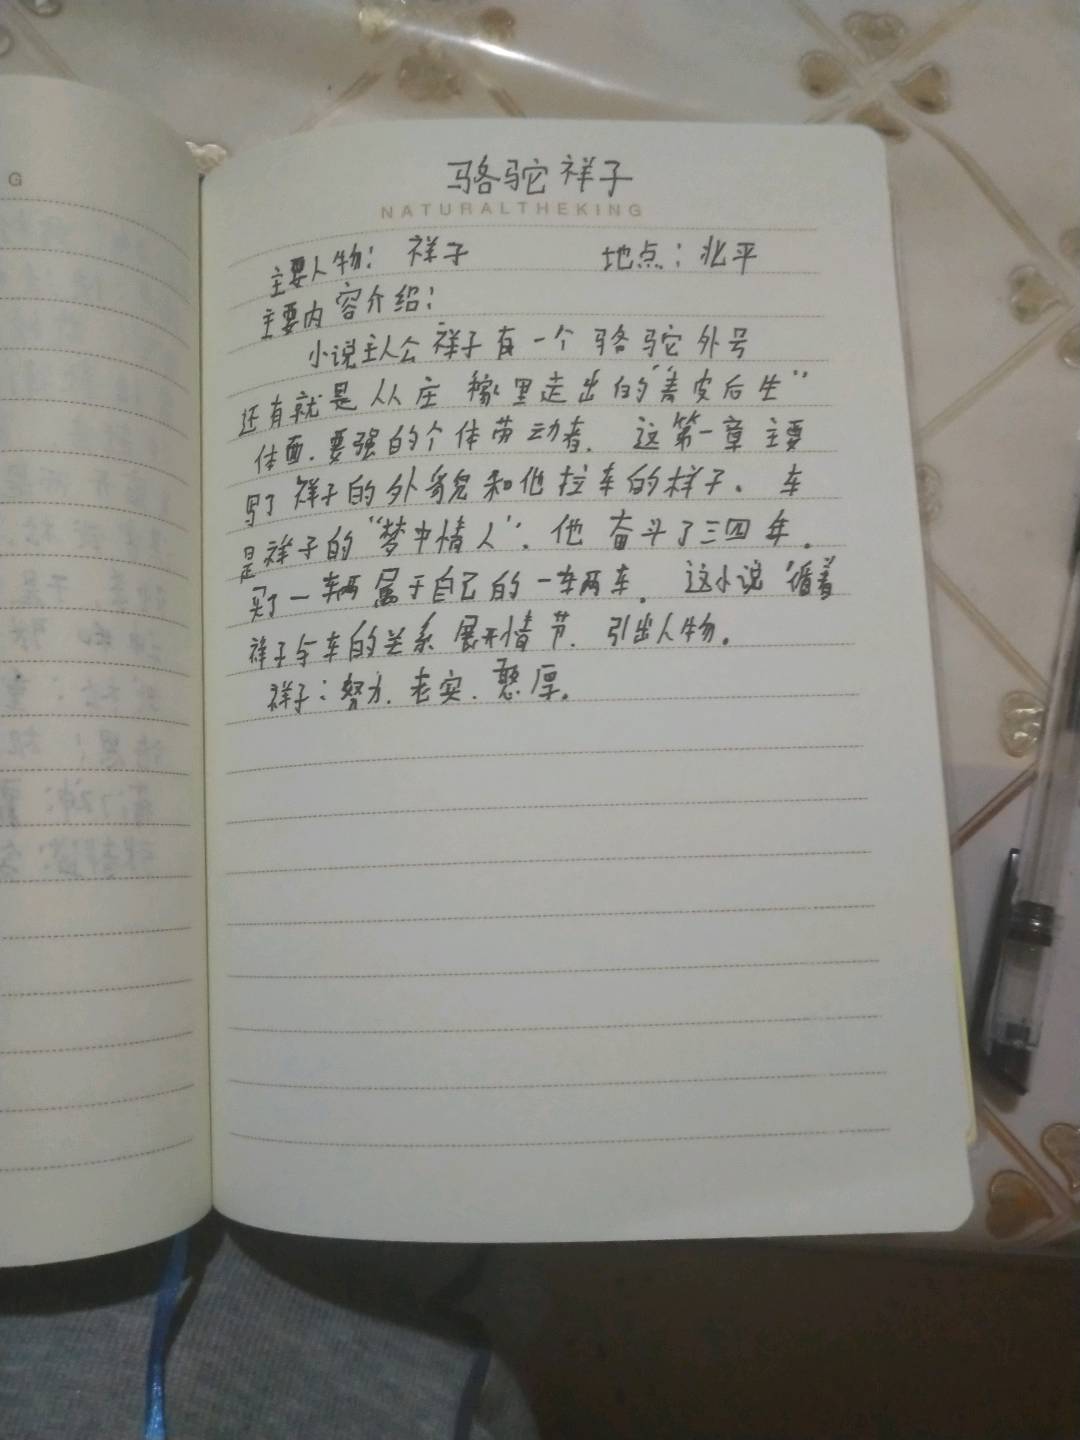 G
骆驼祥子
NATURALTHEKING
主要人物：祥子 地点：北平
主要内容介绍：
小说主人公祥子有一个骆驼外号
还有就是从庄稼里走出的“青皮后生”
体面.要强的个体劳动者. 这第一章主要
写了祥子的外貌和他拉车的样子. 车
是祥子的“梦中情人”. 他奋斗了三四年.
买了一辆属于自己的一辆车. 这小说循着
祥子与车的关系展开情节. 引出人物.
祥子：努力.老实.憨厚.